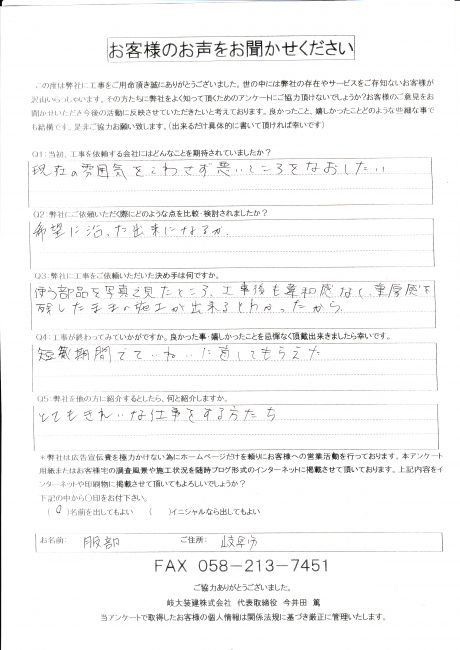 お客様のお声をお聞かせください
この度は弊社に工事をご用命頂き誠にありがとうございました。世の中には弊社の存在やサービスをご存知ないお客様が
沢山いらっしゃいます。その方たちに弊社をよく知って頂くためのアンケートにご協力頂けないでしょうか?お客様のご意見をお
聞かせいただき今後の活動に反映させていただきたいと考えております。良かったこと、嬉しかったことどのような些細な事で
も結構です。是非ご協力お願い致します。(出来るだけ具体的に書いて頂ければ幸いです)
Q1:当初、工事を依頼する会社にはどんなことを期待されていましたか?
現在の雰囲気をこわさず悪いところをなおしたい
Q2:弊社にご依頼いただく際にどのような点を比較・検討されましたか?
希望に沿った出来になるか。
Q3:弊社に工事をご依頼いただいた決め手は何ですか。
使う部品を写真で見たところ、工事後も違和感なく、重厚感を
残したままの施工が出来るとわかったから。
Q4:工事が終わってみていかがですか。良かった事・嬉しかったことを忌憚なく頂戴出来ましたら幸いです。
短期期間でていねいに直してもらえた
Q5:弊社を他の方に紹介するとしたら、何と紹介しますか。
とてもきれいな仕事をする方たち
*弊社は広告宣伝費を極力かけない為にホームページだけを頼りにお客様への営業活動を行っております。本アンケート
用紙またはお客様宅の調査風景や施工状況を随時ブログ形式のインターネットに掲載させて頂いております。上記内容をイ
ンターネットや印刷物に掲載させて頂いてもよろしいでしょうか?
下記の中から○印をお付下さい。
(○)名前を出してもよい ( )イニシャルなら出してもよい
お名前: 服部 ご住所: 岐阜市
FAX 058-213-7451
ご協力ありがとうございました。
岐大装建株式会社 代表取締役 今井田 篤
当アンケートで取得したお客様の個人情報は関係法規に基づき厳正に管理いたします。